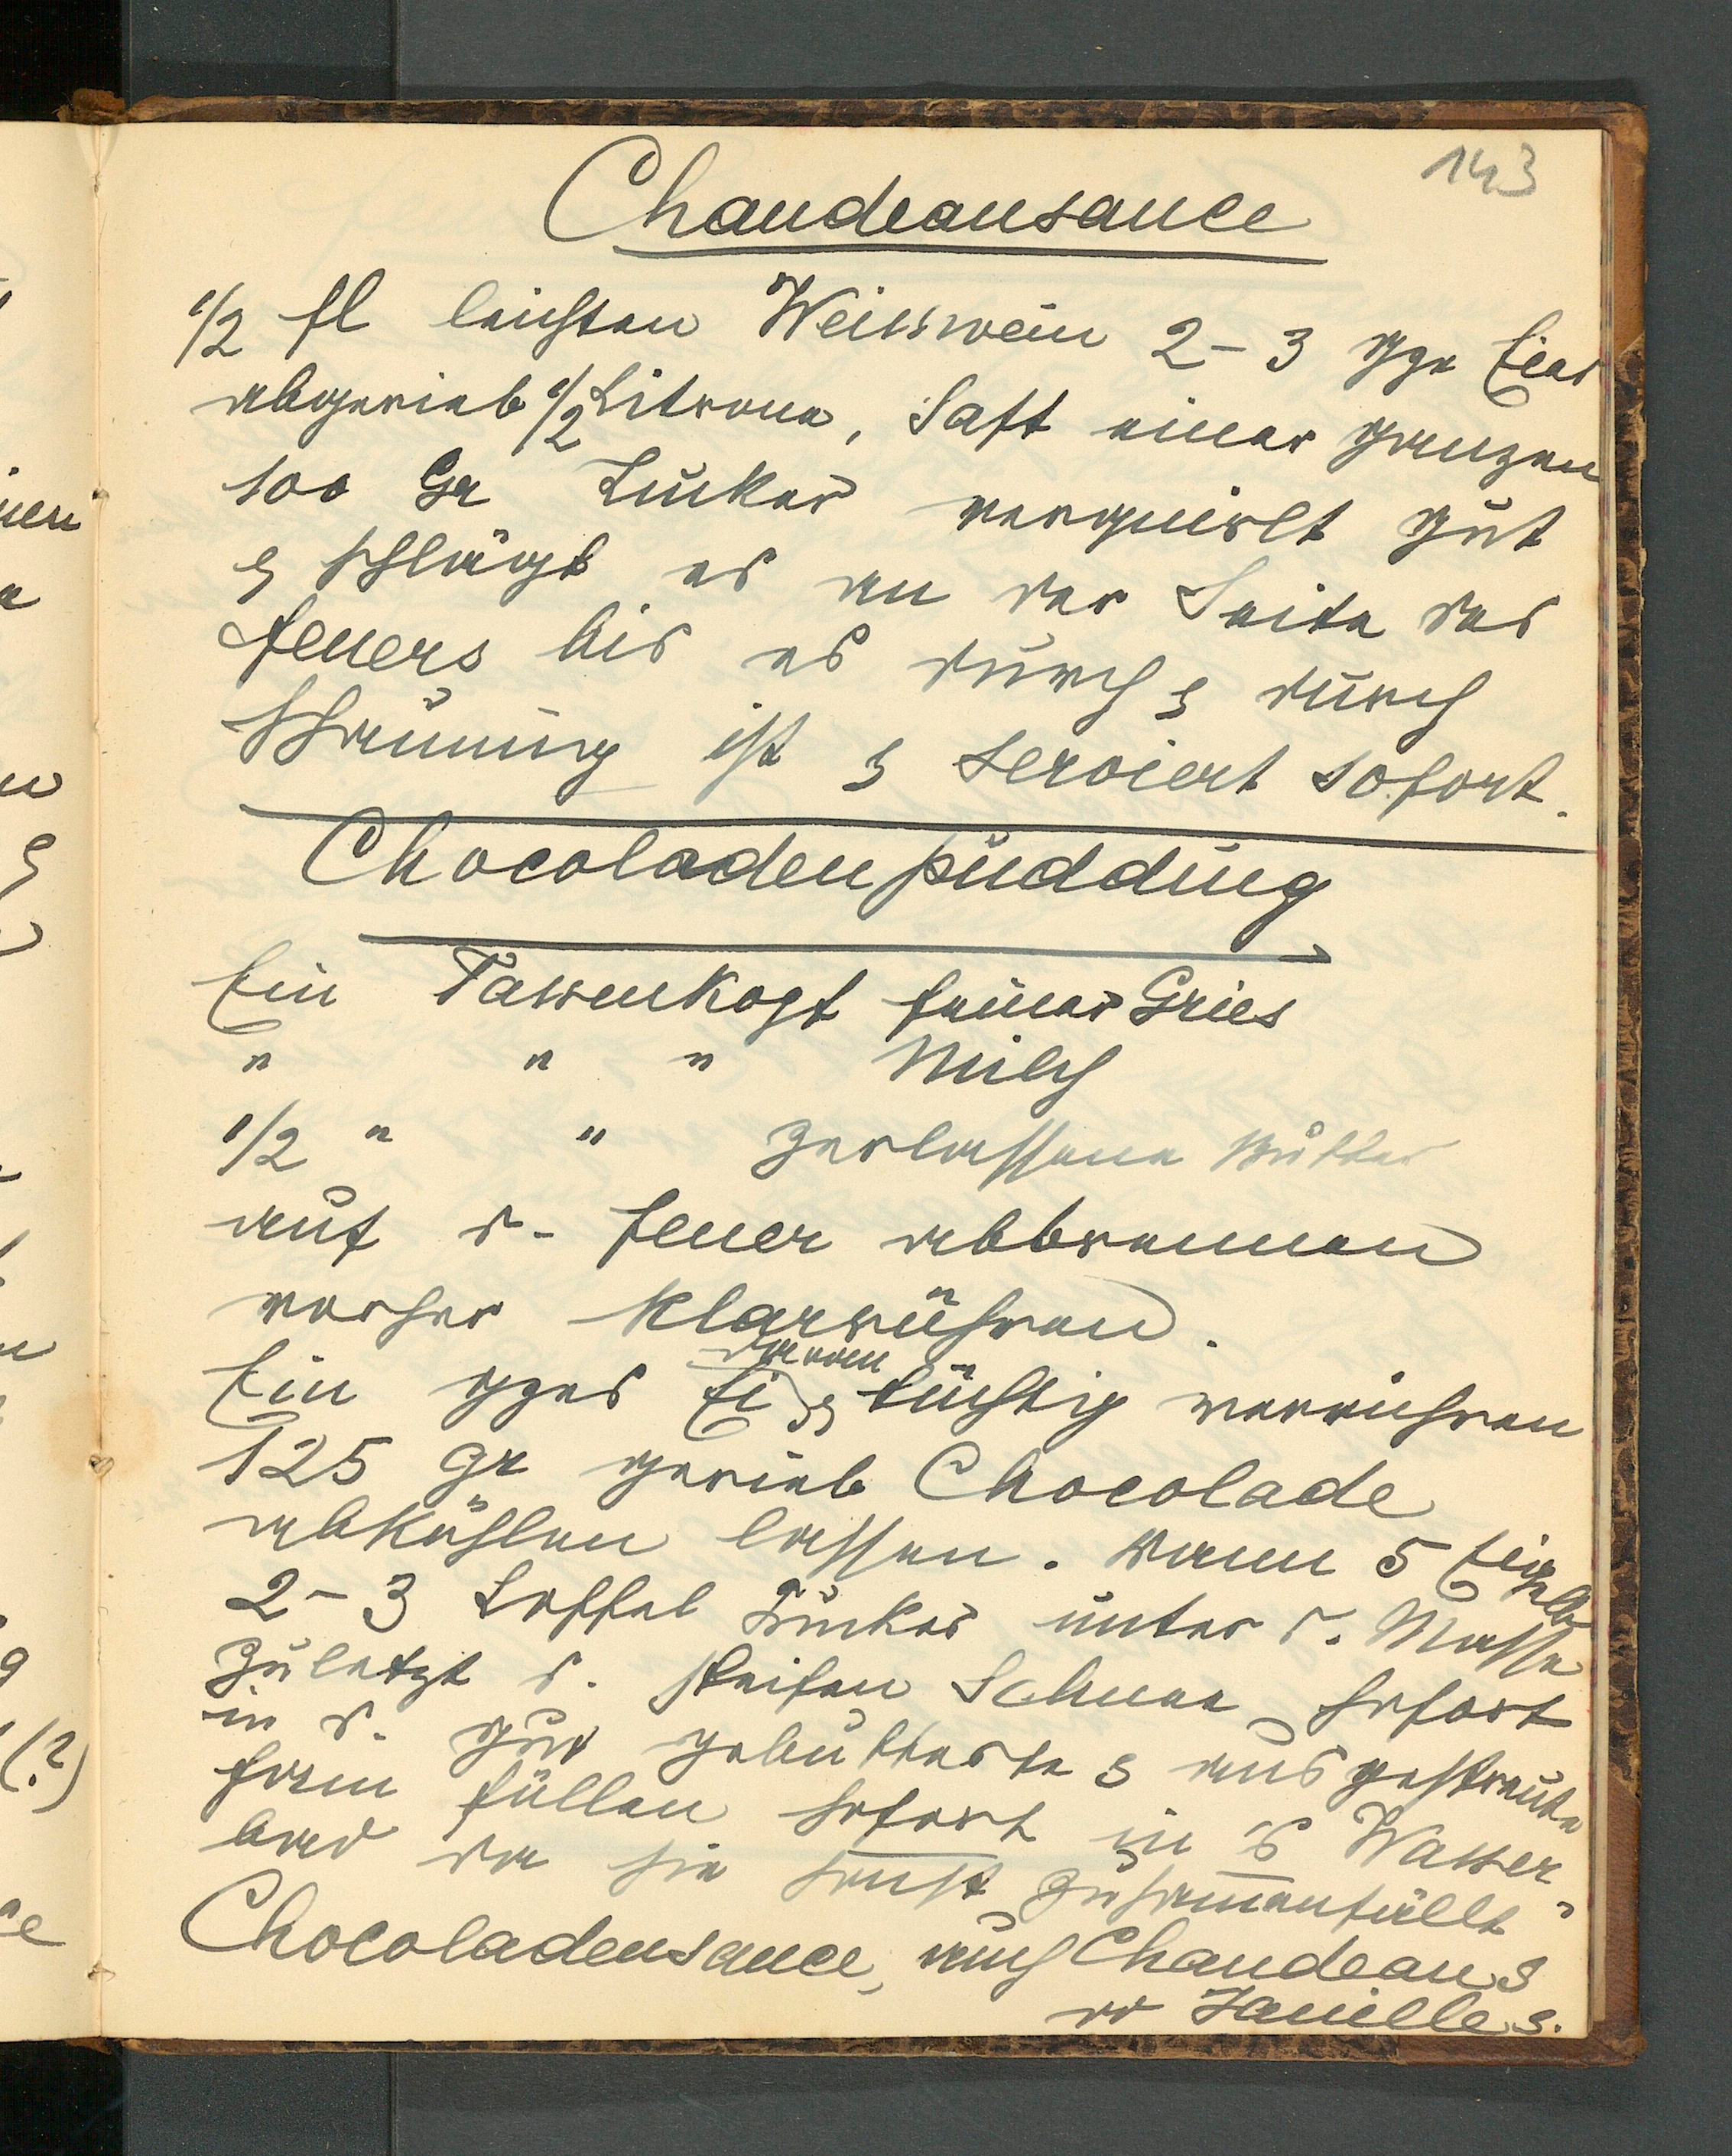 143
Chaudeausauce
1/2 Fl leichten Weisswein 2-3 gze Eier
abgerieb 1/2 Citrone, Saft einer ganzen
100 Gr Zucker verquirlt gut
& schlägt es an der Seite des
Feuers bis es durch & durch
schaumig ist & serviert sofort.
Chocoladenpudding
Ein Tassenkopf feiner Gries
" " " Milch
1/2 " " zerlassene Butter
auf d. Feuer abbrennen
vorher klarrühren.
daran
Ein gzes Ei & tüchtig verrühren
125 gr gerieb Chocolade
abkühlen lassen. Dann 5 Eigelb
2-3 Löffel Zucker unter d. Masse
zuletzt d. steifen Schnee sofort
in d. gut gebutterte & ausgestreute
Form füllen sofort in's Wasser
bad da sie sonst zusammenfällt
Chocoladensauce, auch Chaudeau s
od Vanille s.